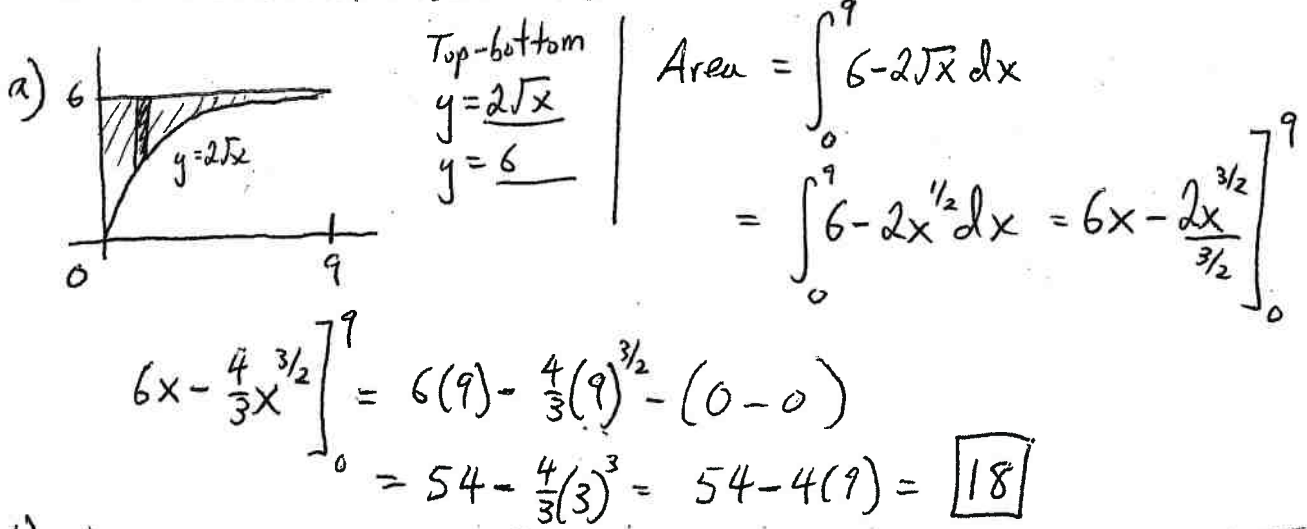 a) 6
y=2√x
0 9
Top-bottom
y=2√x
y=6
Area = ∫₀⁹ 6-2√x dx
= ∫₀⁹ 6-2x^{1/2} dx = 6x - 2x^{3/2}/(3/2) ]₀⁹
6x - 4/3 x^{3/2} ]₀⁹ = 6(9) - 4/3 (9)^{3/2} - (0-0)
= 54 - 4/3 (3)³ = 54-4(9) = 18